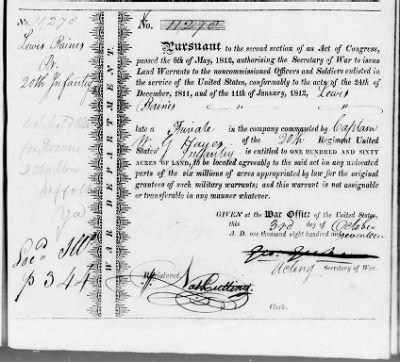 No. 11,270
Lewis Raines
Pr.
20th Infantry
Suffolk
Va
Loc'd Ill
p 344
WAR DEPARTMENT.
No. 11,270
Pursuant to the second section of an Act of Congress,
passed the 6th of May, 1812, authorising the Secretary of War to issue
Land Warrants to the noncommissioned Officers and Soldiers enlisted in
the service of the United States, conformably to the acts of the 24th of
December, 1811, and of the 11th of January, 1812, Lewis
Raines " " "
late a Private in the company commanded by Captain
Wm G Hayes of the 20th Regiment United
States' Infantry is entitled to ONE HUNDRED AND SIXTY
ACRES OF LAND, to be located agreeably to the said act on any unlocated
parts of the six millions of acres appropriated by law for the original
grantees of such military warrants; and this warrant is not assignable
or transferable in any manner whatever.
GIVEN at the War Office of the United States,
this 3rd day of October
A. D. one thousand eight hundred and seventeen
Geo. Graham
Acting Secretary of War.
Registered
Nat Cutting
Clerk.